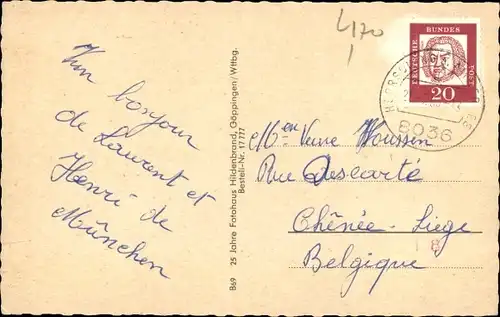 Un bonjour
de Laurent et
Henri de
München
B69 25 Jahre Fotohaus Hildenbrand, Göppingen/Wttbg.
Bestell-Nr. 17777
L170
DEUTSCHE BUNDESPOST
20
8036
Men Veuve Woussen
Rue Descarte
Chênée - Liege
8
Belgique